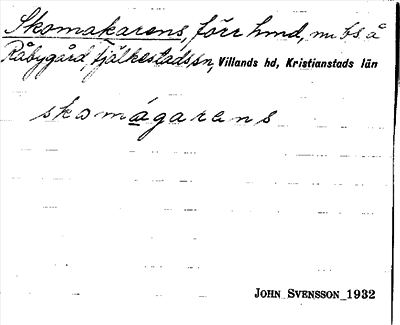 Skomakarens, förr hmd, m. bs å
Råbygård, Fjälkestads sn, Villands hd, Kristianstads län
skomågarens
JOHN SVENSSON 1932